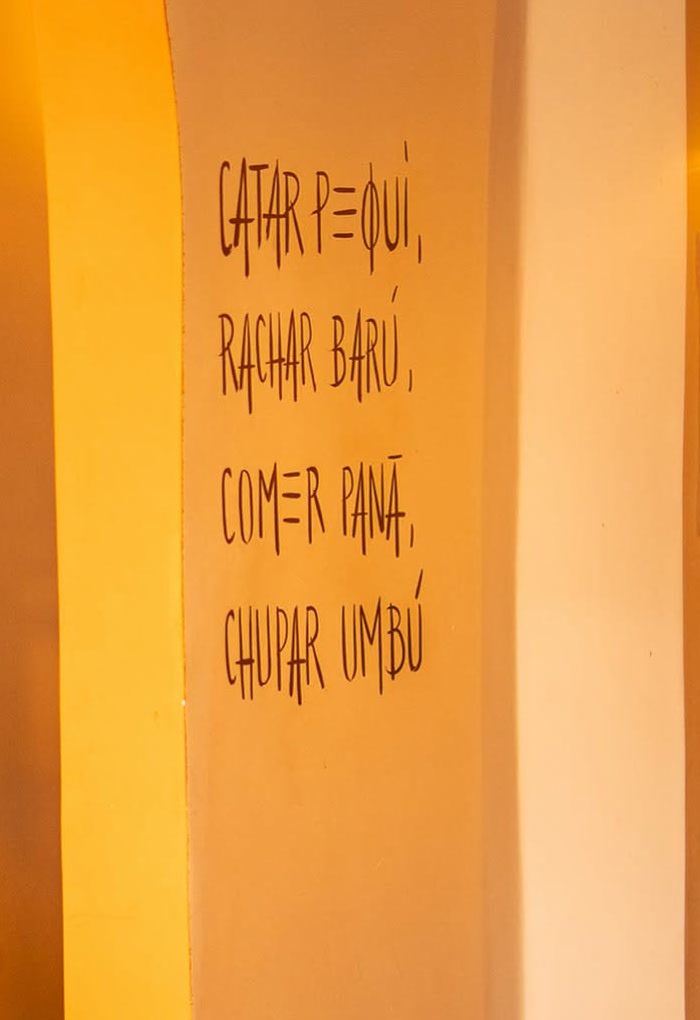 CATAR PEQUI,
RACHAR BARÚ,
COMER PANÃ,
CHUPAR UMBÚ